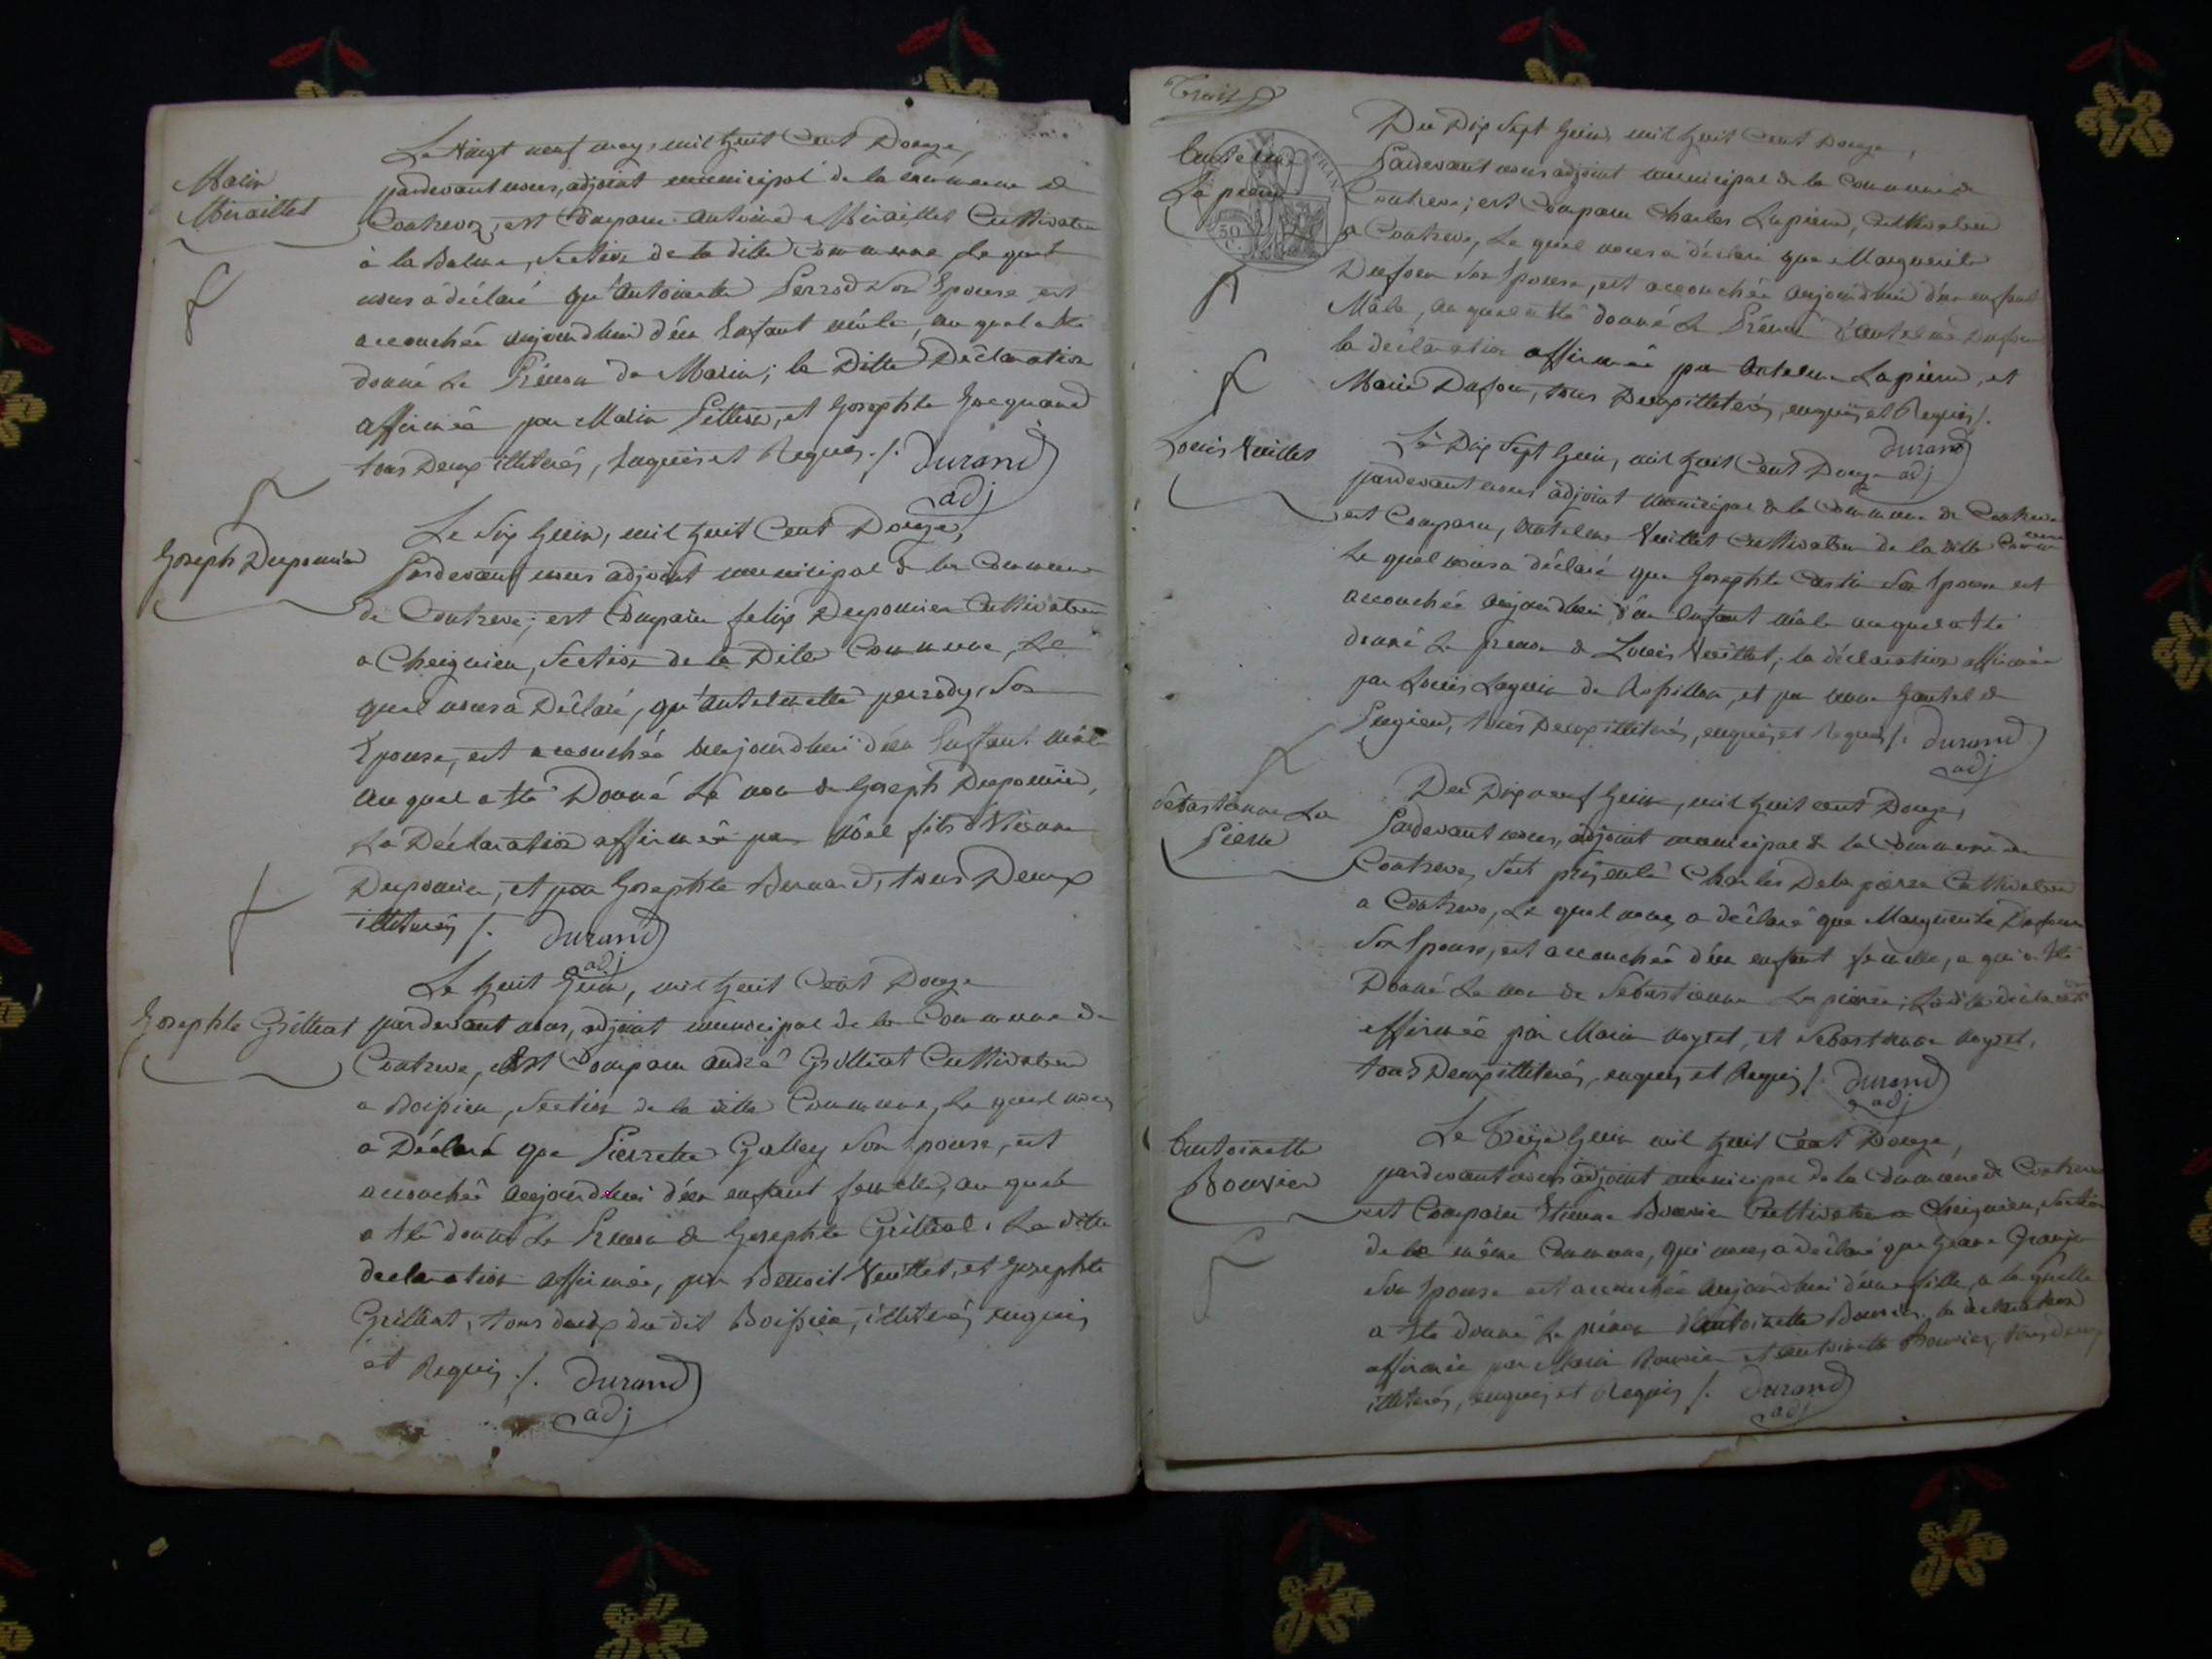 Marin
Miraillet
Le Vingt neuf may, mil huit Cent Douze,
pardevant nous, adjoint municipal de la commune de
Contrevoz, est Comparu antoine Miraillet Cultivateur
à la Balme, Section de la ditte Commune, le quel
nous a déclaré qu'antoinette Perrod Son Epouse est
accouchée aujourdhui d'un Enfant mâle, au quel a été
donné Le Prénom de Marin; la Ditte Déclaration
affirmée par Marin Pillion, et Josephte
tous Deux illiterés, Enquis et Requis ./. Durand
adj
Joseph Dupomier
Le Six Juin, mil huit Cent Douze,
Pardevant nous adjoint municipal de la Commune
de Contrevoz; est Comparu felix Dupomier Cultivateur
a Cheignieu, Section de la Dite Commune, Le
quel nous a Déclaré, qu'antelmette perrody, Son
Epouse, est accouchée aujourdhui d'un Enfant mâle
Au quel a été Donné Le nom de Joseph Dupomier,
La Déclaration affirmée par Noel fils d'Etienne
Dupomier, et par Josephte Bernard, tous Deux
illiterés /. Durand
adj
Josephte Grilliat
Le huit Juin, mil huit Cent Douze
pardevant nous, adjoint municipal de la Commune de
Contrevoz, Est Comparu andré Grilliat Cultivateur
a Boissieu, Section de la ditte Commune, Le quel nous
a Déclaré que Pierrette Gallay Son Epouse, est
accouchée aujourdhui d'un enfant femelle, au quel
a été donné Le Prénom de Josephte Grilliat. La ditte
declaration affirmée, par Benoit Vuillet, et Josephte
Grilliat, tous deux du dit Boissieu, illiterés enquis
et Requis ./. Durand
adj
Trois
Antelme
Lapierre
Du Dix Sept Juin mil huit Cent Douze,
Pardevant nous adjoint municipal de la Commune de
Contrevoz; est Comparu Charles Lapierre, Cultivateur
a Contrevoz, Le quel nous a déclaré que Marguerite
Dufour Son Epouse, est accouchée aujourdhui d'un enfant
Mâle, au quel a été donné Le Prénom d'antelme
la déclaration affirmée par antelme Lapierre, et
Marie Dufour, tous Deux illiterés, enquis et Requis /.
Durand
adj
Louis Vuillet
Le Dix Sept Juin, mil huit Cent Douze
pardevant nous adjoint municipal de la Commune de Contrevoz
est Comparu, antelme Vuillet Cultivateur de la ditte Commune
Le quel nous a déclaré que Josephte Son Epouse est
accouchée aujourdhui d'un Enfant mâle au quel a été
donné Le prenom de Louis Vuillet; la déclaration affirmée
par Louis de et par
tous Deux illiterés, enquis et Requis /. Durand
adj
Sébastienne La
Pierre
Du Dix neuf Juin, mil huit cent Douze,
Pardevant nous, adjoint municipal de la Commune de
Contrevoz, S'est présenté Charles Delapierre Cultivateur
a Contrevoz, Le quel nous a déclaré que Marguerite Dufour
Son Epouse, est accouchée d'un enfant femelle, a qui a été
Donné Le nom de Sébastienne La pierre; Ladite déclaration
affirmée par Marin et Sebastienne
tous Deux illiterés, enquis et Requis /. Durand
adj
Antoinette
Bouvier
Le Juin mil huit Cent Douze,
pardevant nous adjoint municipal de la Commune de Contrevoz
est Comparu Etienne Bouvier Cultivateur a Cheignieu, Section
de la même Commune, qui nous a déclaré que Jeane
Son Epouse est accouchée aujourdhui d'une fille, a laquelle
a été donné Le prénom d'antoinette Bouvier, la declaration
affirmée par Marin Bouvier et antoinette Bouvier, tous deux
illiterés, enquis et Requis /. Durand
adj